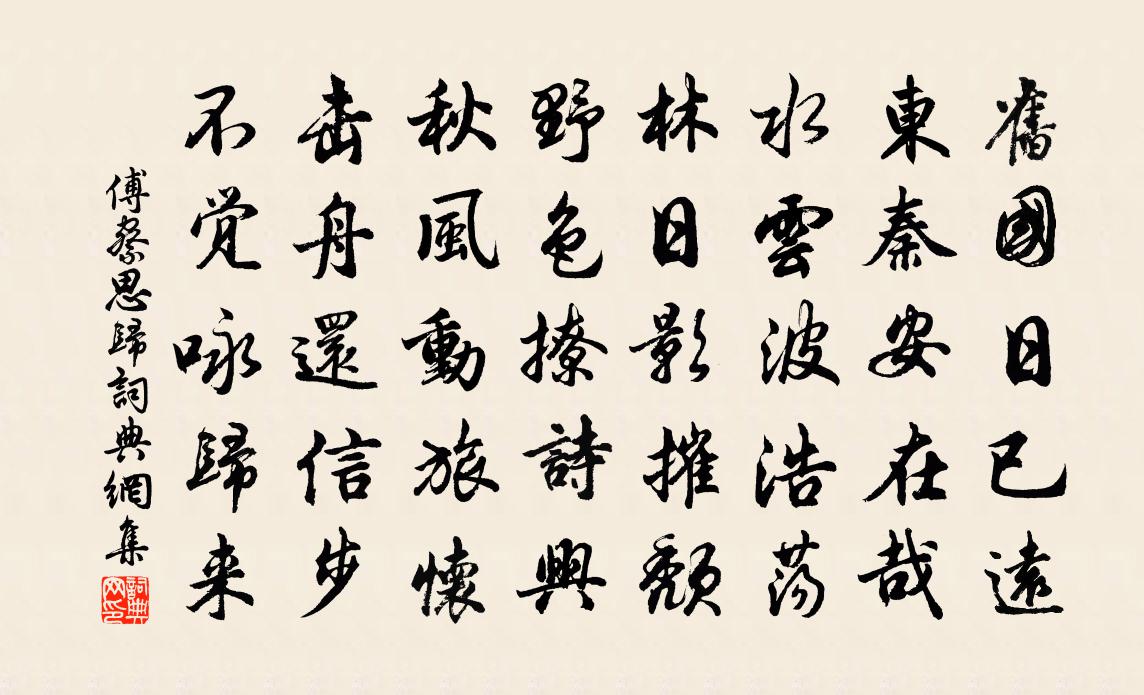 舊國日已遠
東秦安在哉
水雲波浩蕩
林日影摧頹
野色撩詩興
秋風動旅懷
舍舟還信步
不覚咏歸来
傅察思歸詞典網集
詞典网印